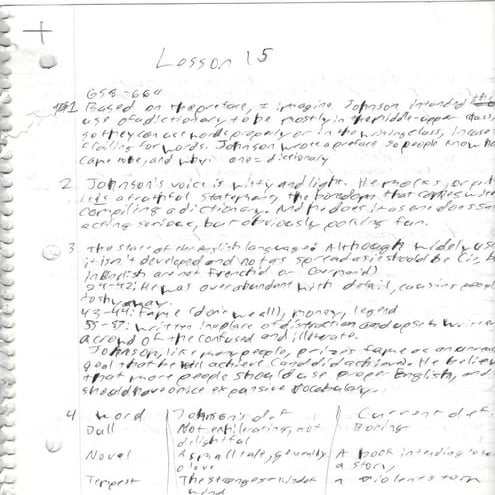 Lesson 15
658-664
1 Based on the preface, I imagine Johnson intended the
use of a dictionary to be mostly in the middle-upper class,
so they can use words properly or in the writing class, in case
for words. Johnson wrote a preface so people know how
came to be, and why. one = dictionary
2 Johnson's voice is witty and light. He mocks, or puts
it as a truthful statement, the that comes with
compiling a dictionary. And he does it as one does
acting serious, but obviously poking fun.
3 The state of the english language: Although widely used
it isn't developed and not as spread as it should be (i.e.,
in English are not french'd or )
24-42: He was overabundant with detail, causing people
to shy away.
43-44: Fame (don't we all), money, legend
55-57: written in place of distraction and upset, written
a crowd of the confused and illiterate.
Johnson, like many people, prizes fame as an
goal that he will achieve. He believes
that more people should use proper English, and
should have once expansive vocabulary.
4 word Johnson's def Current def
Dull Not exhilarating, not Boring
delightful
Novel A small tale, generally A book intending to
of love a story,
Tempest The strongest kind of a violent storm
wind